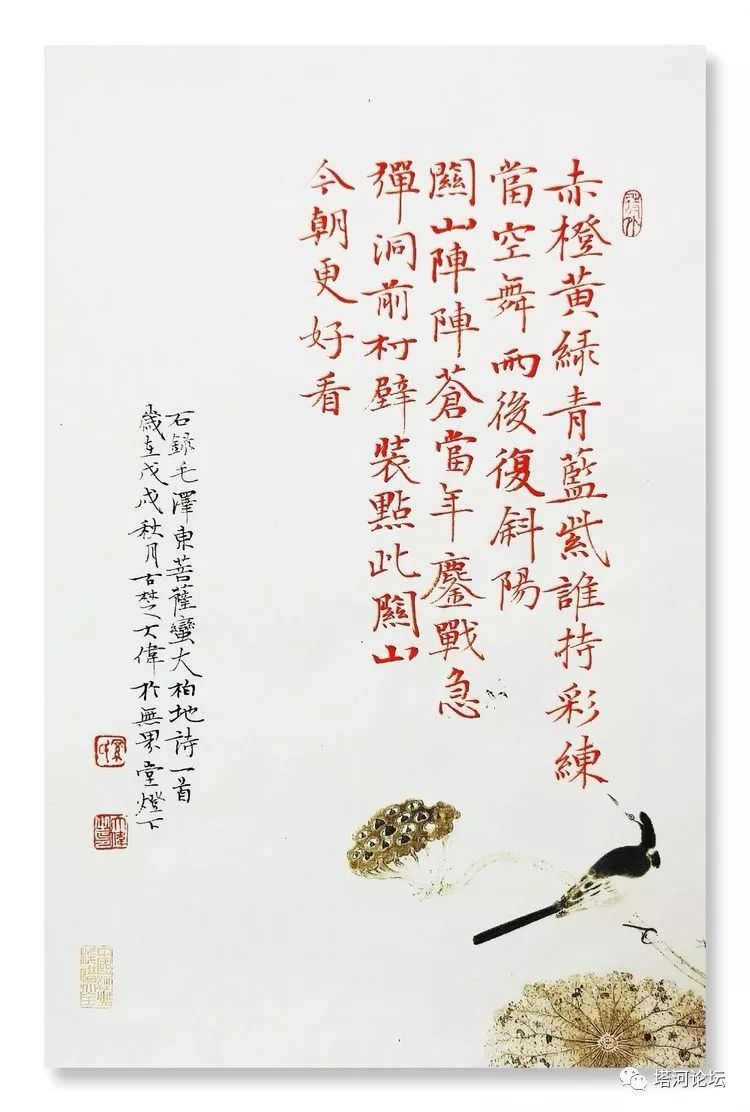 赤橙黃綠青藍紫誰持彩練
當空舞雨後復斜陽
關山陣陣蒼當年鏖戰急
彈洞前村壁裝點此關山
今朝更好看
右錄毛澤東菩薩蠻大柏地詩一首
歲在戊戌秋月古楚大偉於無界堂燈下
塔河论坛